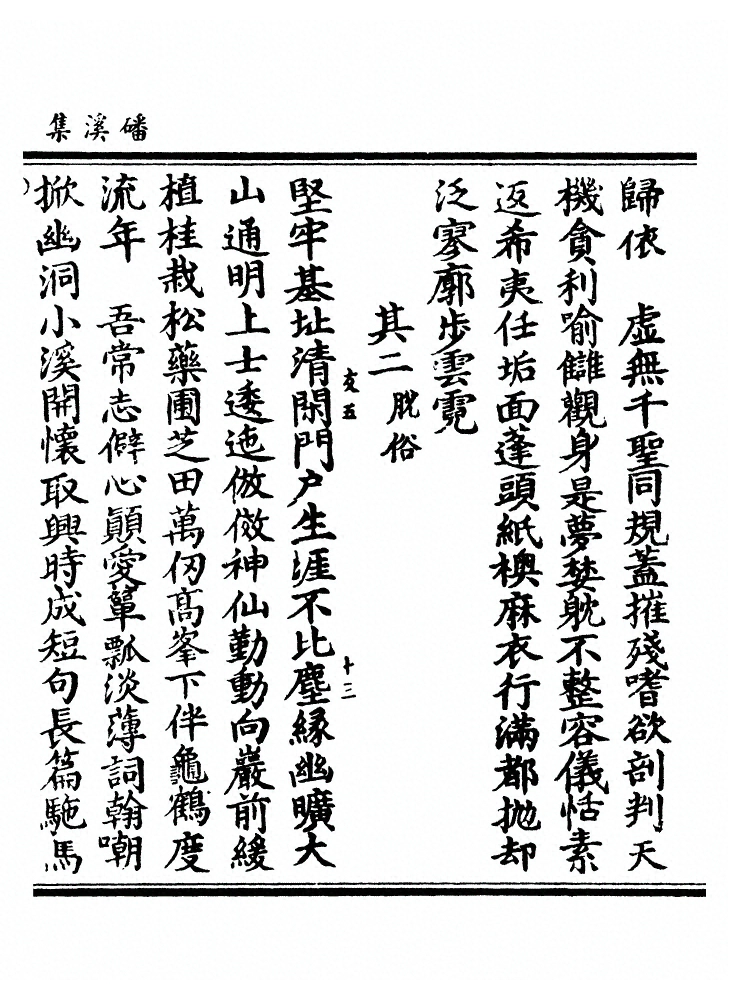 磻溪集
歸依　虛無千聖同規蓋摧殘嗜欲剖判天
機貪利喻讎觀身是夢婪躭不整容儀恬素
返希夷任垢面蓬頭紙襖麻衣行滿都拋却
泛寥廓步雲霓
其二 脫俗
友五　十三
堅牢基址清閑門戶生涯不比塵緣幽曠大
山通明上士逶迤倣傚神仙勤動向巖前緩
植桂栽松藥圃芝田萬仞高峯下伴龜鶴度
流年　吾常志僻心顛愛簞瓢淡薄詞翰嘲
掀幽洞小溪開懷取興時成短句長篇馳馬